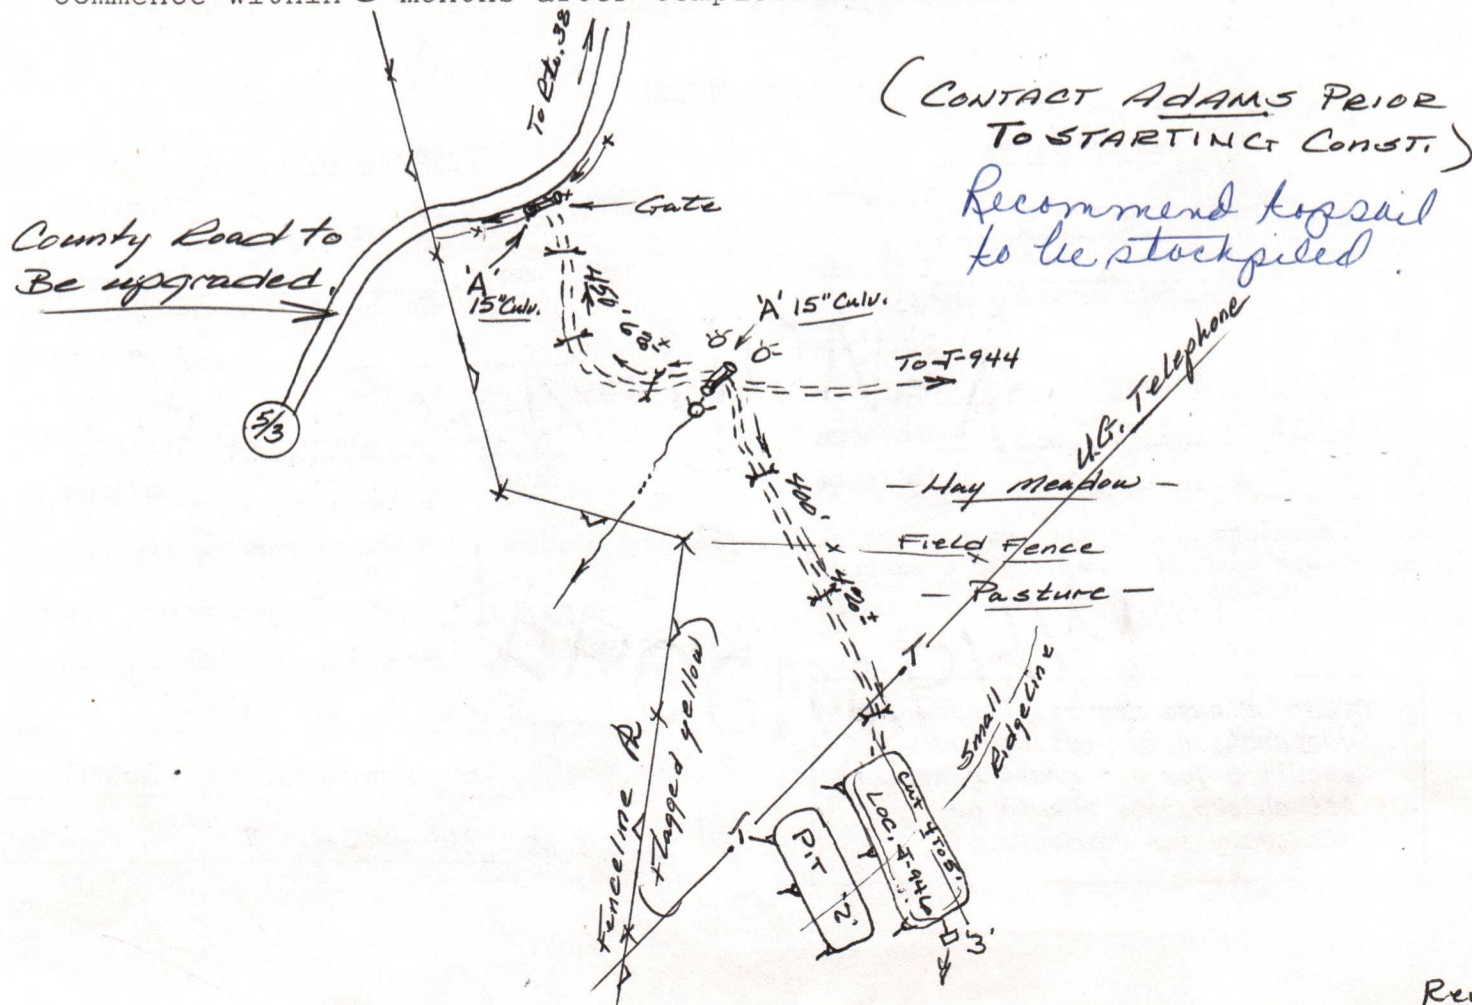 commence within 3 months after
To Rte. 38
(CONTACT ADAMS PRIOR
TO STARTING CONST.)
Recommend topsoil
to be stockpiled.
Gate
County Road to
Be upgraded.
'A'
15" Culv.
'A' 15" Culv.
To J-944
U.G. Telephone
5/3
400'
- Hay Meadow -
Field Fence
- Pasture -
Small
Ridgeline
Fenceline
(Flagged yellow)
Cut 4 To 5'
LOC. J-946
PIT
'2'
'3'